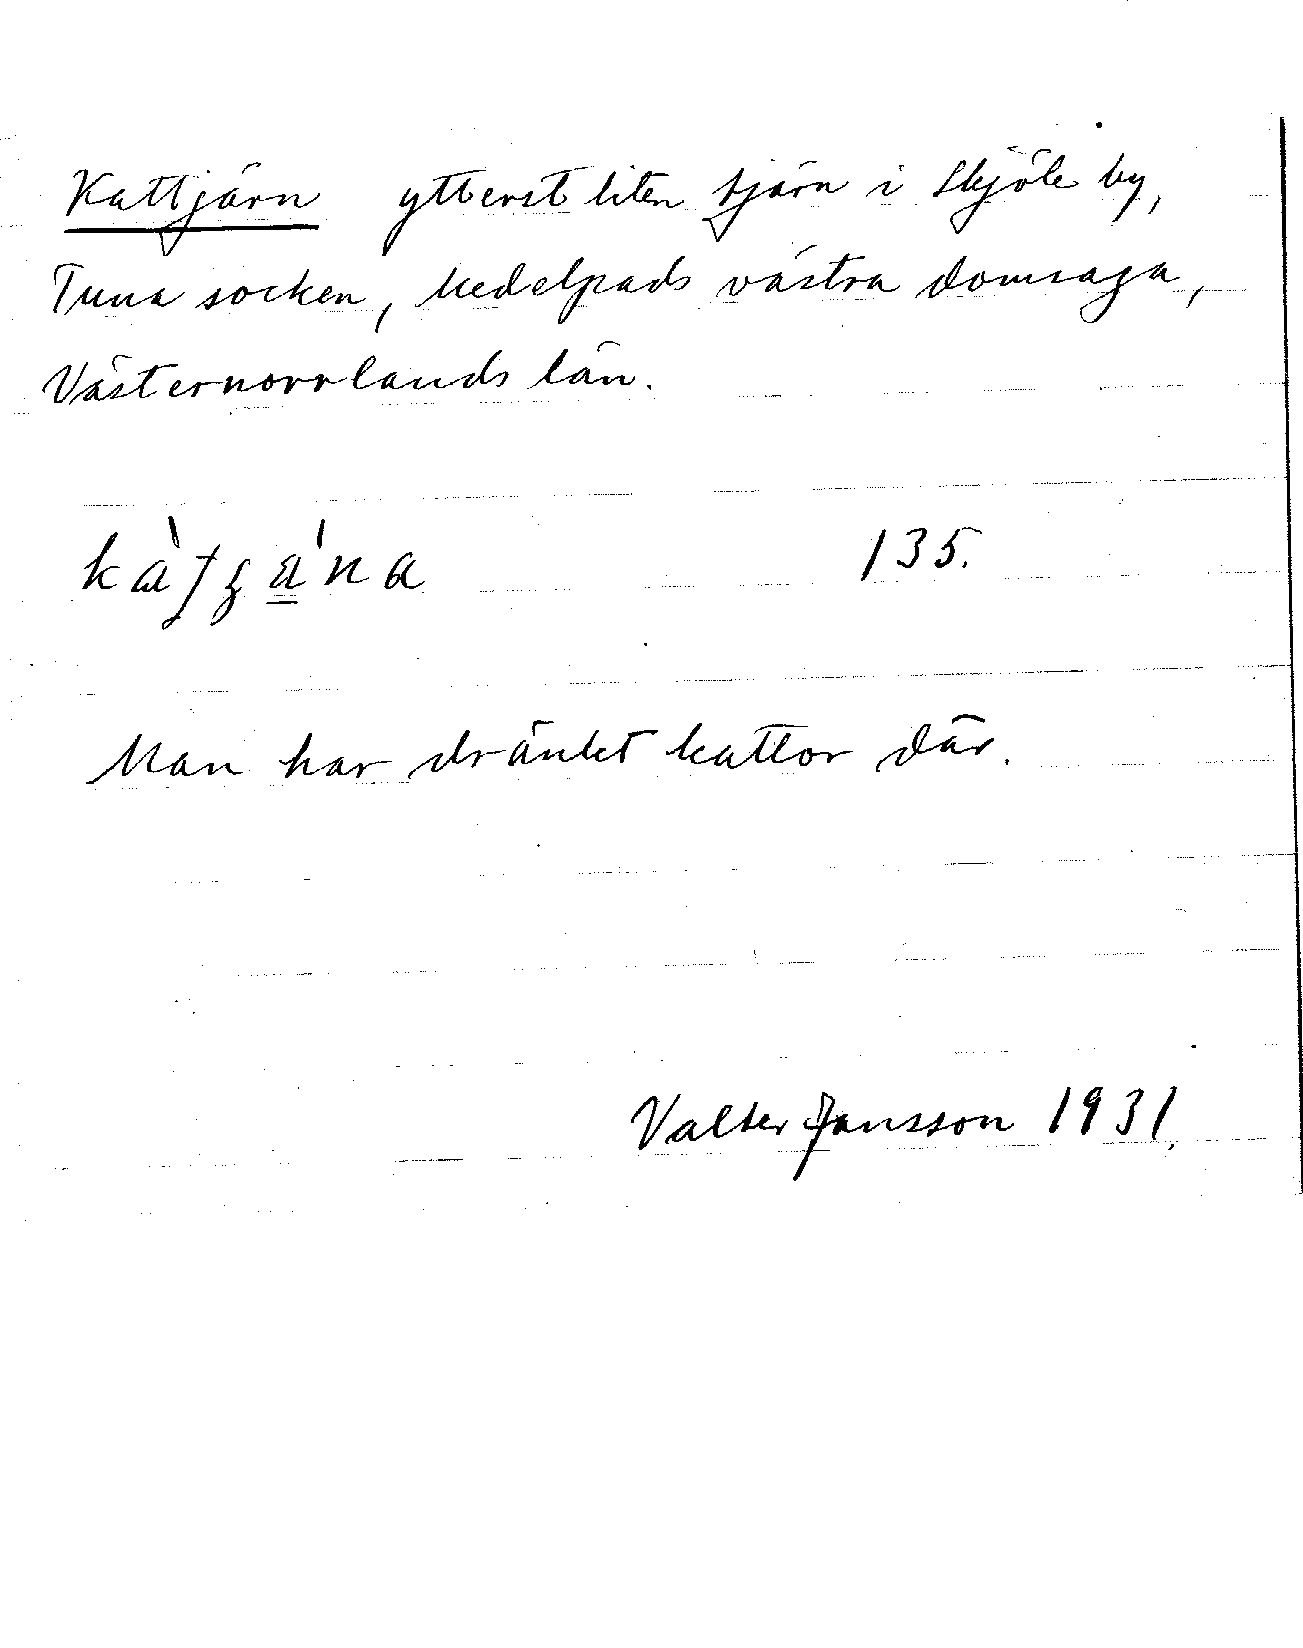 Kattjärn ytterst liten tjärn i Skjöle by,
Tuna socken, Medelpads västra domsaga,
Västernorrlands län.
135.
Man har dränkt kattor där.
Valter Jansson 1931.